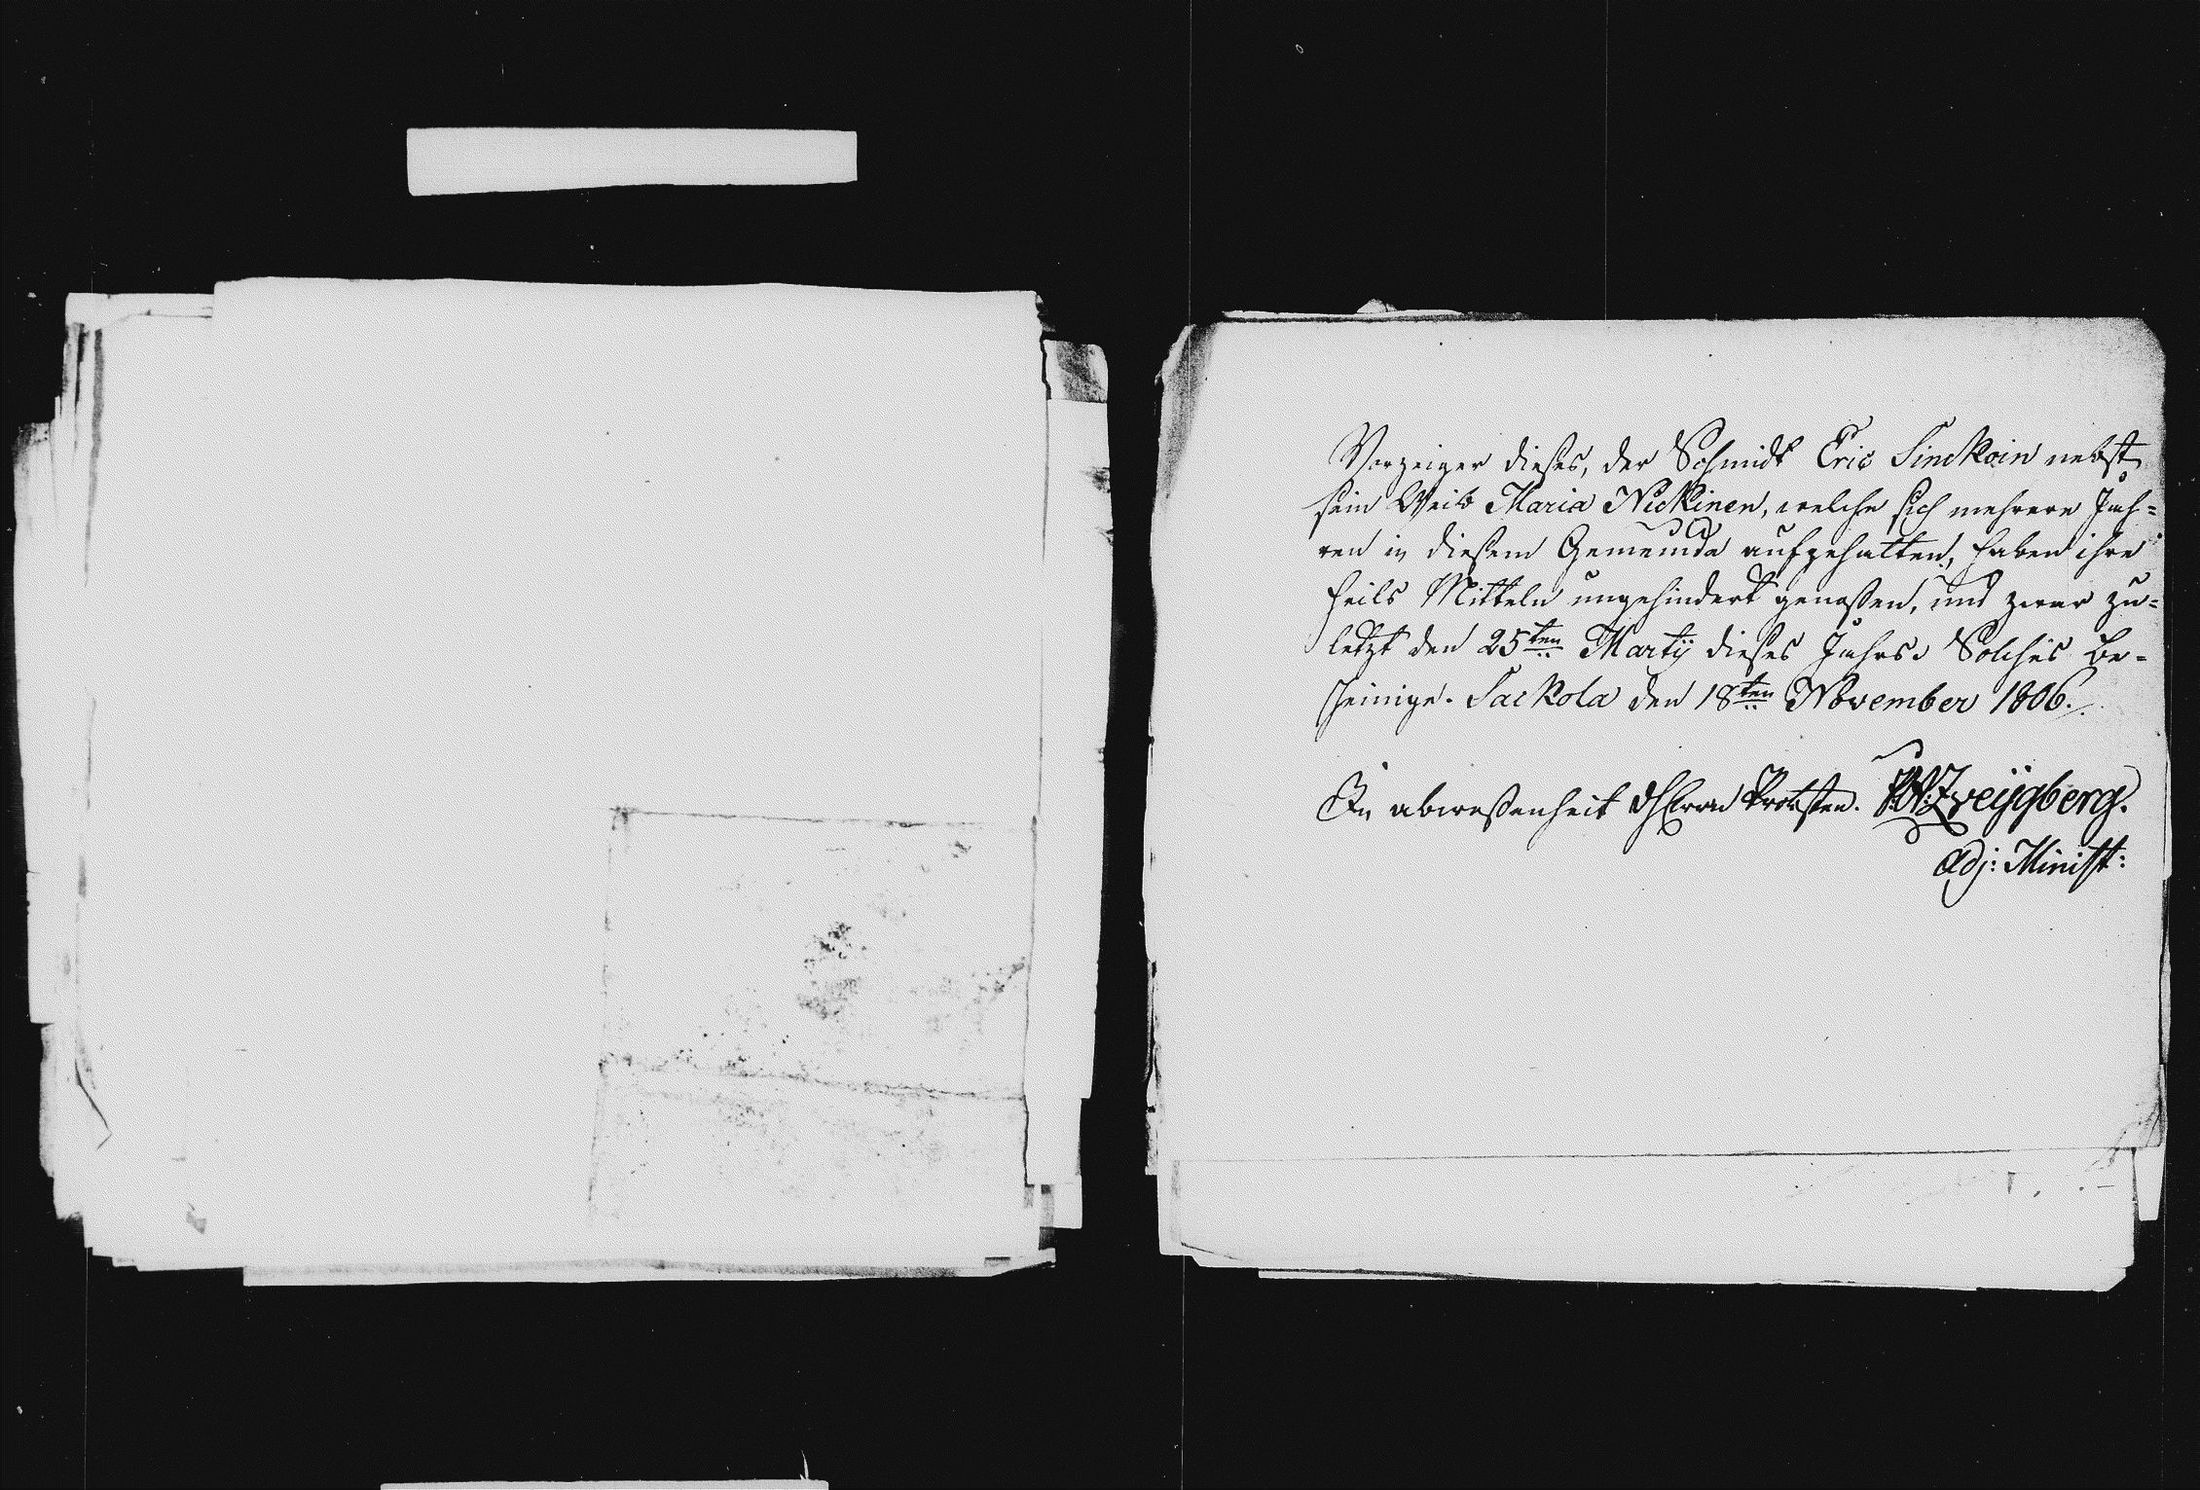 Vorzeiger dieses, der Schmidt Eric Sinckoin nebst
sein Weib Maria Nickinen, welche sich mehrere Jah=
ren in diesem Gemeinde aufgehalten, haben ihre
heils Mitteln ungehindert genoßen, und zwar zu=
letzt den 25ten Martij dieses Jahrs. Solches be=
scheinige. Sackola den 18ten November 1806.
In abweßenheit Herrn Probsten. Zweijgberg.
Adj: Minist: